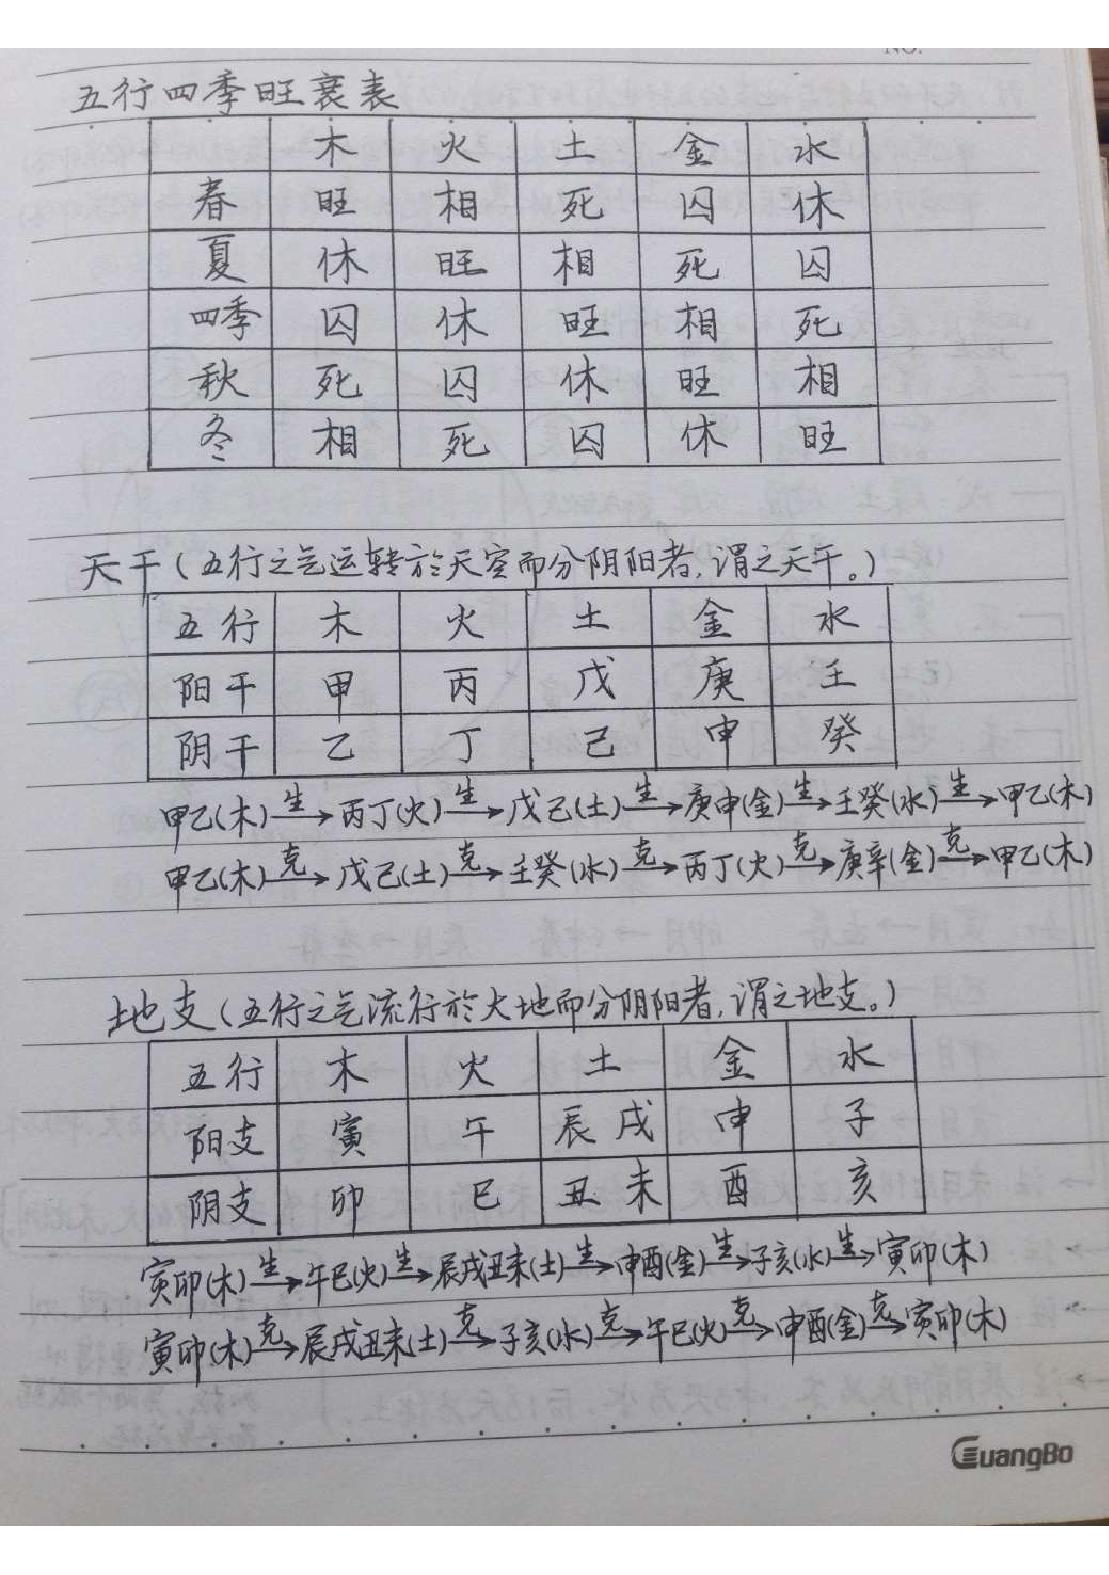 五行四季旺衰表
木 火 土 金 水
春 旺 相 死 囚 休
夏 休 旺 相 死 囚
四季 囚 休 旺 相 死
秋 死 囚 休 旺 相
冬 相 死 囚 休 旺
天干(五行之气运转於天空而分阴阳者,谓之天干。)
五行 木 火 土 金 水
阳干 甲 丙 戊 庚 壬
阴干 乙 丁 己 申 癸
甲乙(木)生→丙丁(火)生→戊己(土)生→庚申(金)生→壬癸(水)生→甲乙(木)
甲乙(木)克→戊己(土)克→壬癸(水)克→丙丁(火)克→庚辛(金)克→甲乙(木)
地支(五行之气流行於大地而分阴阳者,谓之地支。)
五行 木 火 土 金 水
阳支 寅 午 辰戌 申 子
阴支 卯 巳 丑未 酉 亥
寅卯(木)生→午巳(火)生→辰戌丑未(土)生→申酉(金)生→子亥(水)生→寅卯(木)
寅卯(木)克→辰戌丑未(土)克→子亥(水)克→午巳(火)克→申酉(金)克→寅卯(木)
GuangBo